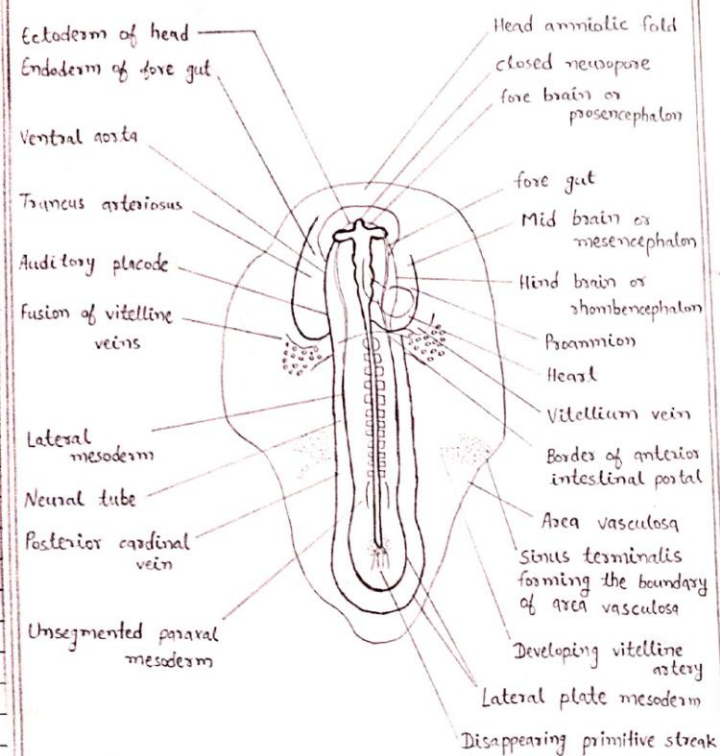 Ectoderm of head
Endoderm of fore gut
Ventral aorta
Truncus arteriosus
Auditory placode
Fusion of vitelline
veins
Lateral
mesoderm
Neural tube
Posterior cardinal
vein
Unsegmented paraxal
mesoderm
Head amniotic fold
closed neuropore
fore brain or
prosencephalon
fore gut
Mid brain or
mesencephalon
Hind brain or
rhombencephalon
Proamnion
Heart
Vitellium vein
Border of anterior
intestinal portal
Area vasculosa
Sinus terminalis
forming the boundary
of area vasculosa
Developing vitelline
artery
Lateral plate mesoderm
Disappearing primitive streak